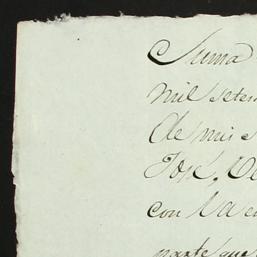 Suma
mil seten
de mis
José, Ve
con la
parte que